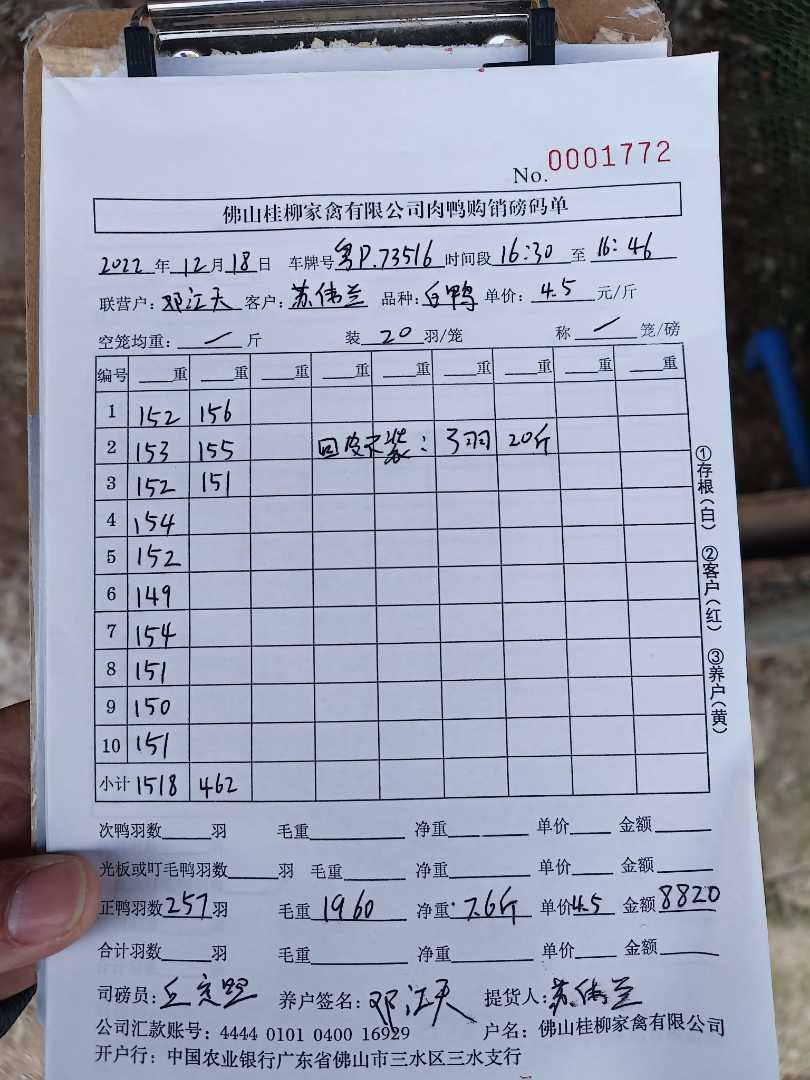 No. 0001772
佛山桂柳家禽有限公司肉鸭购销磅码单
2022年12月18日 车牌号粤P.73516时间段16:30至16:46
联营户:邓江天 客户:苏伟兰 品种:白鸭 单价:4.5元/斤
空笼均重:/斤 装20羽/笼 称/笼/磅
编号 重 重 重 重 重 重 重 重 重
1 152 156
2 153 155 回皮不装:3羽 20斤
3 152 151
4 154
5 152
6 149
7 154
8 151
9 150
10 151
小计 1518 462
次鸭羽数 羽 毛重 净重 单价 金额
光板或叮毛鸭羽数 羽 毛重 净重 单价 金额
正鸭羽数257羽 毛重1960 净重7.6斤 单价4.5 金额8820
合计羽数 羽 毛重 净重 单价 金额
司磅员: 养户签名:邓江天 提货人:苏伟兰
公司汇款账号:4444 0101 0400 16929 户名:佛山桂柳家禽有限公司
开户行:中国农业银行广东省佛山市三水区三水支行
①存根(白) ②客户(红) ③养户(黄)